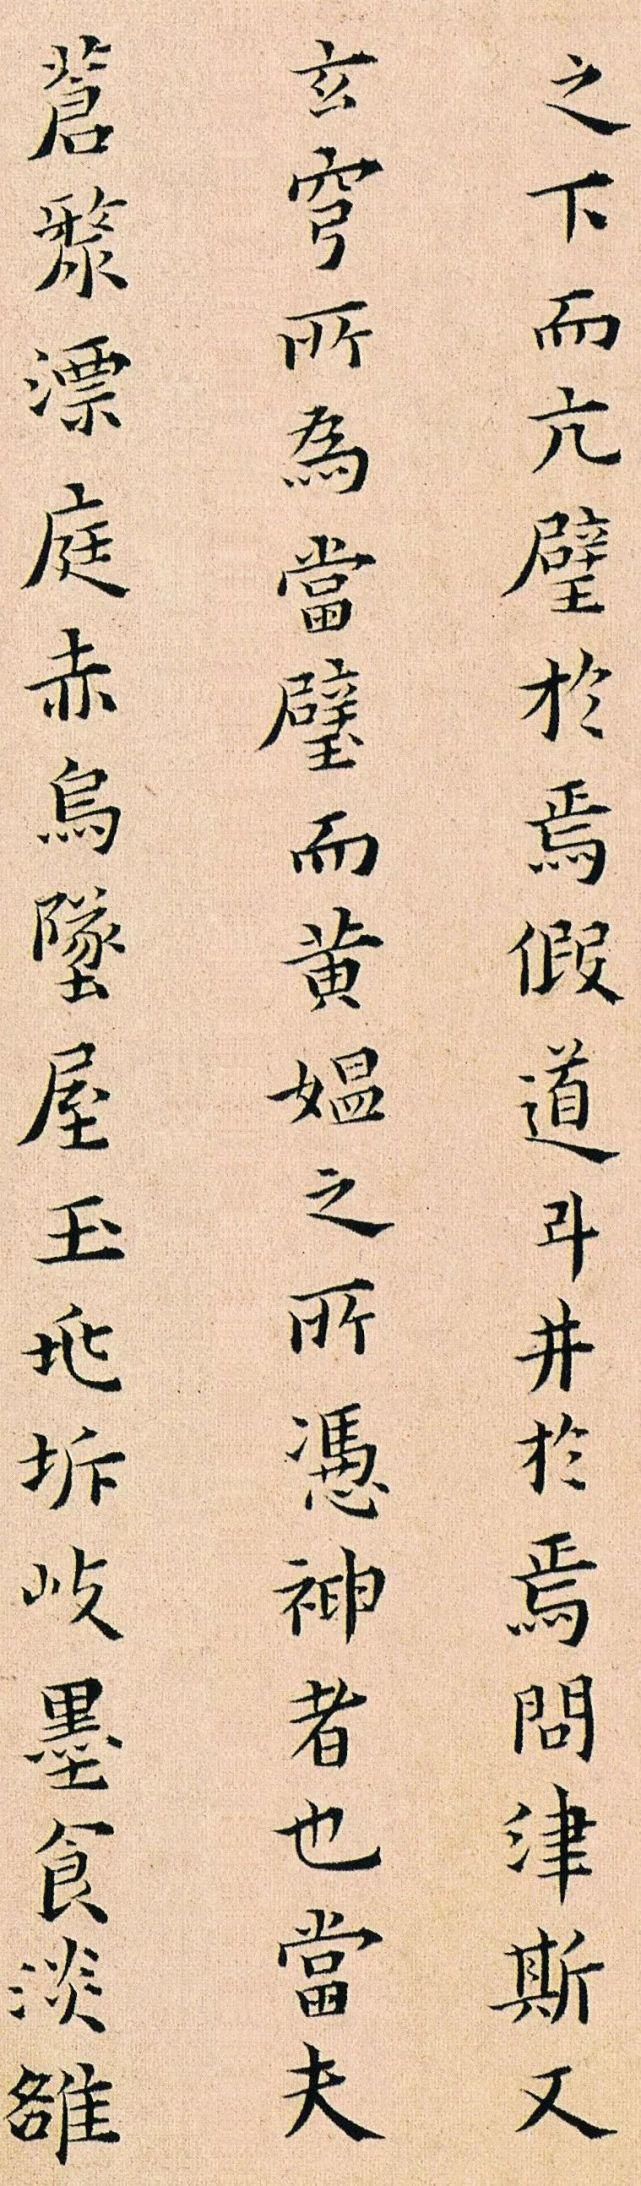 之下而亢璧於焉假道斗井於焉問津斯又
玄穹所為當璧而黄媪之所憑神者也當夫
蒼漦漂庭赤烏墜屋玉兆坼歧墨食淡雒